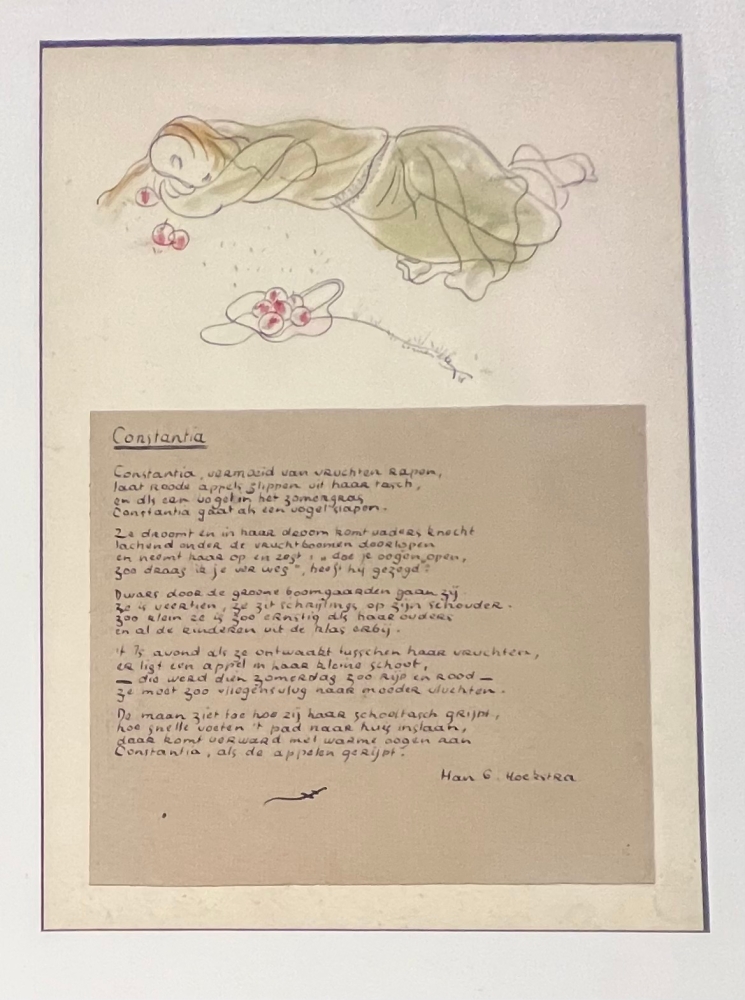 Constantia
Constantia, vermoeid van vruchten rapen,
laat roode appels glippen uit haar tasch,
en als een vogel in het zomergras
Constantia gaat als een vogel slapen.
Ze droomt en in haar droom komt vaders knecht
lachend onder de vruchtboomen doorloopen
en neemt haar op en zegt: „doe je oogen open,
zoo draag ik je ver weg", heeft hij gezegd.
Dwars door de groene boomgaarden gaan zij.
ze is veertien, ze zit schrijlings op zijn schouder.
zoo klein ze is zoo ernstig als haar ouders
en al de kinderen uit de klas erbij.
't Is avond als ze ontwaakt tusschen haar vruchten,
er ligt een appel in haar kleine schoot,
— die werd dien zomerdag zoo rijp en rood —
ze moet zoo vliegensvlug naar moeder vluchten.
De maan ziet toe hoe zij haar schooltasch grijpt,
hoe snelle voeten 't pad naar huis inslaan,
daar komt verward met warme oogen aan
Constantia, als de appelen gerijpt.
Han G. Hoekstra